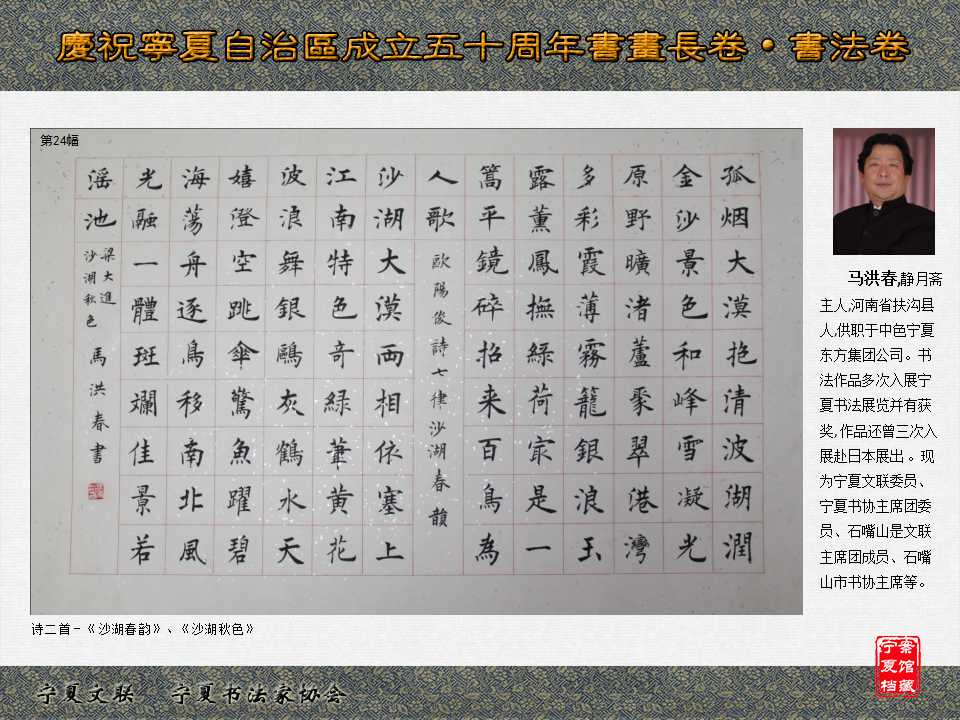 慶祝寧夏自治區成立五十周年書畫長卷·書法卷
第24幅
孤烟大漠抱清波湖潤
金沙景色和峰雪凝光
原野曠渚蘆聚翠港灣
多彩霞薄霧籠銀浪玉
露薰鳳撫綠荷家是一
篙平鏡碎招来百鳥為
人歌
歐陽俊詩七律沙湖春韻
沙湖大漠両相依塞上
江南特色奇綠葦黃花
波浪舞銀鷗灰鶴水天
嬉澄空跳傘驚魚躍碧
海蕩舟逐鳥移南北風
光融一體斑斕佳景若
滛池
梁大進
沙湖秋色
馬洪春書
诗二首－《沙湖春韵》、《沙湖秋色》
马洪春,静月斋
主人,河南省扶沟县
人,供职于中色宁夏
东方集团公司。书
法作品多次入展宁
夏书法展览并有获
奖,作品还曾三次入
展赴日本展出。现
为宁夏文联委员、
宁夏书协主席团委
员、石嘴山是文联
主席团成员、石嘴
山市书协主席等。
宁夏档案馆藏
宁夏文联 宁夏书法家协会